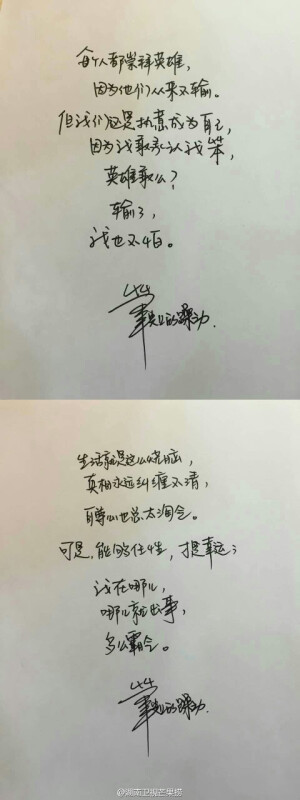 每个人都崇拜英雄,
因为他们从来不输。
但我们还是执意成为自己,
因为我敢承认我笨,
英雄敢么?
输了,
我也不怕。
的躁动.
生活就是这么烧脑,
真相永远纠缠不清,
自尊心也总太淘气。
可是,能够任性,才是幸运;
我在哪儿,
哪儿就出事,
多么霸气。
的躁动.
@湖南卫视芒果捞